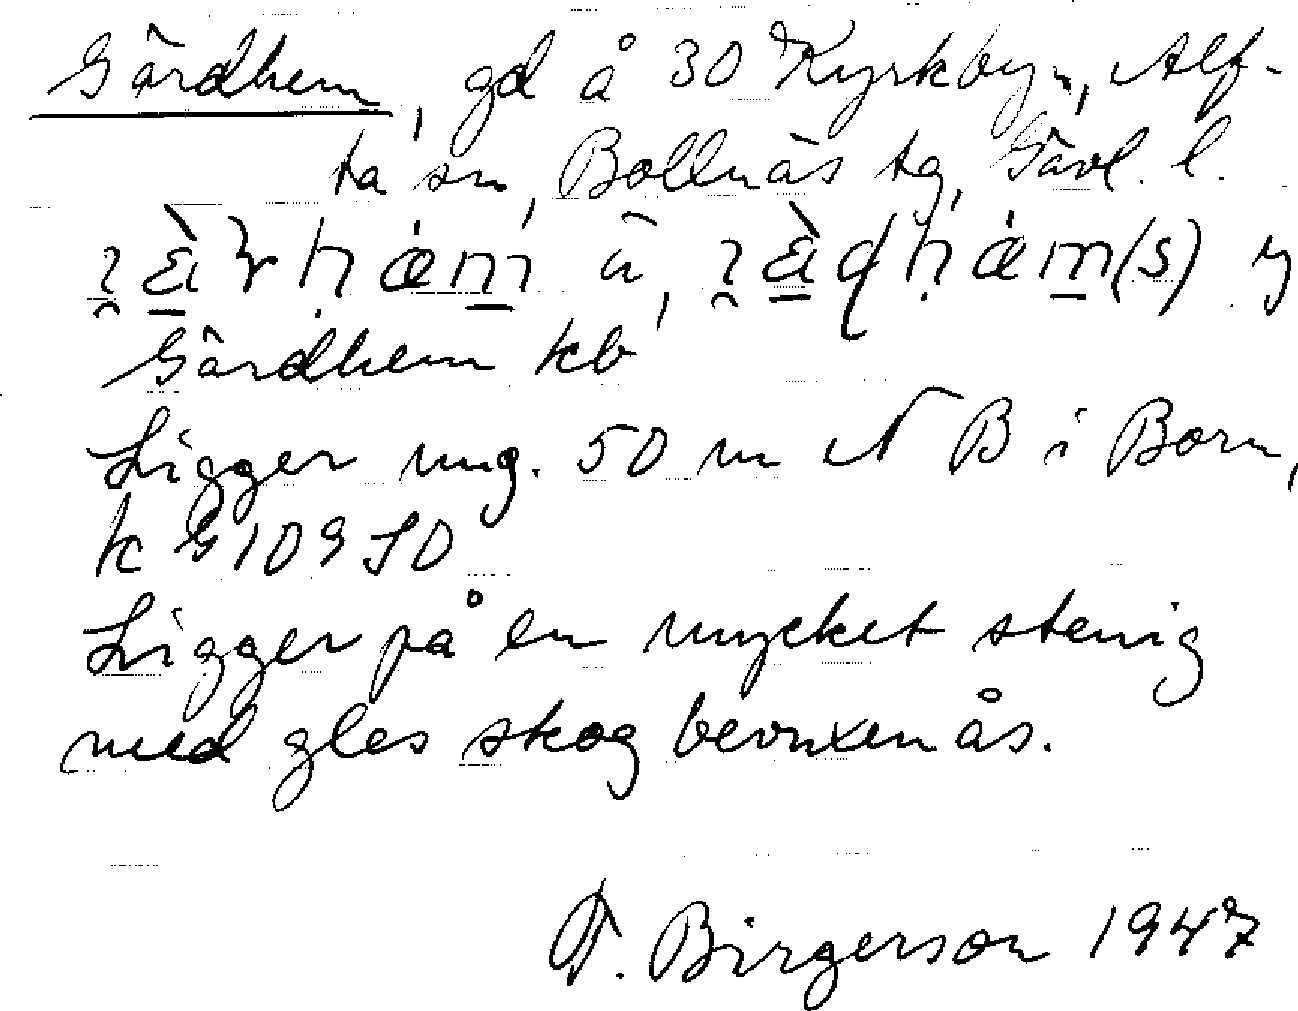 Gårdhem, gd å 30 Kyrkbyn, Alf-
ta sn, Bollnäs tg, Gävl. l.
Gårdhem kb
Ligger ung. 50 m N B i Born,
k G 109 SO
Ligger på en mycket stenig
med gles skog bevuxen ås.
F. Birgerson 1947